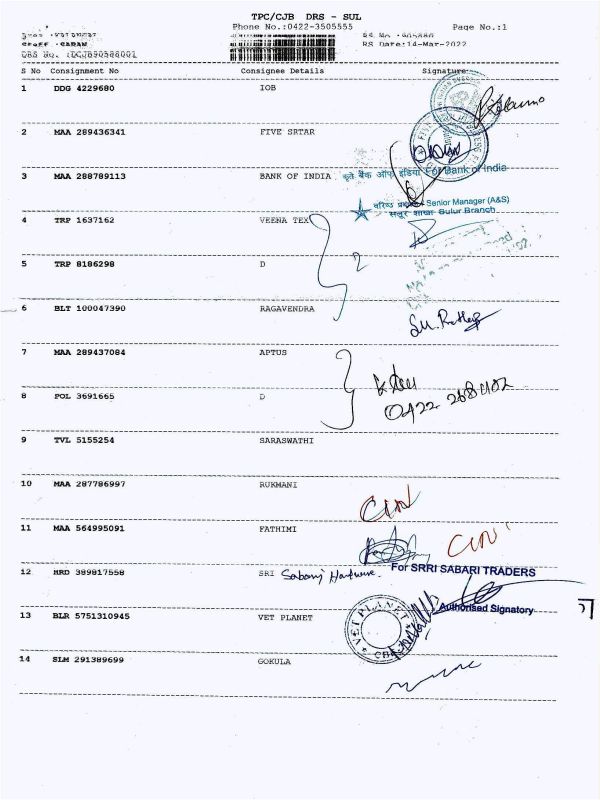 TPC/CJB DRS - SUL
Phone No.:0422-3505555 Page No.:1
RS Date:14-Mar-2022
S No Consignment No Consignee Details Signature
1 DDG 4229680 IOB
2 MAA 289436341 FIVE SRTAR
3 MAA 288789113 BANK OF INDIA कृते बैंक ऑफ इंडिया For Bank of India
Senior Manager (A&S)
सलूर शाखा Sulur Branch
4 TRP 1637162 VEENA TEX
5 TRP 8186298 D 2
6 BLT 100047390 RAGAVENDRA
7 MAA 289437084 APTUS
8 POL 3691665 D
9 TVL 5155254 SARASWATHI
10 MAA 287786997 RUKMANI
11 MAA 564995091 FATHIMI
12 HRD 389817558 SRI Sabari Hardware. For SRRI SABARI TRADERS
Authorised Signatory
13 BLR 5751310945 VET PLANET VET PLANET
14 SLM 291389699 GOKULA